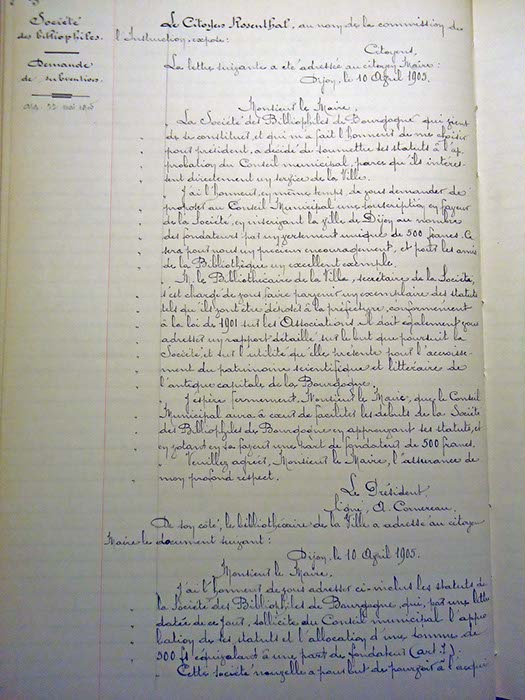 Société
des bibliophiles.
Demande
de subvention.
Le Citoyen Rosenthal, au nom de la commission de
l'Instruction, expose:
Citoyens,
La lettre suivante a été adressée au citoyen Maire:
Dijon, le 10 Avril 1905.
Monsieur le Maire,
" La Société des Bibliophiles de Bourgogne qui vient
" de se constituer, et qui m'a fait l'honneur de me choisir
" pour président, a décidé de soumettre ses statuts à l'ap-
" probation du Conseil municipal, parce qu'ils intéres-
" sent directement un service de la Ville.
" J'ai l'honneur, en même temps, de vous demander de
" proposer au Conseil Municipal une souscription en faveur
" de la Société, en inscrivant la ville de Dijon au nombre
" des fondateurs par un versement unique de 500 francs. Ce
" sera pour nous un précieux encouragement, et pour les amis
" de la Bibliothèque un excellent exemple.
" M. le Bibliothécaire de la Ville, secrétaire de la Société,
" s'est chargé de vous faire parvenir un exemplaire des statuts
" tels qu'ils ont été déposés à la préfecture, conformément
" à la loi de 1901 sur les Associations; il doit également vous
" adresser un rapport détaillé sur le but que poursuit la
" Société et sur l'utilité qu'elle présente pour l'accroisse-
" ment du patrimoine scientifique et littéraire de
" l'antique capitale de la Bourgogne.
" J'espère fermement, Monsieur le Maire, que le Conseil
" Municipal aura à cœur de faciliter les débuts de la Société
" des Bibliophiles de Bourgogne en approuvant ses statuts, et
" en votant en sa faveur une part de fondateur de 500 francs.
" Veuillez agréer, Monsieur le Maire, l'assurance de
" mon profond respect.
Le Président
Signé, A. Cornereau.
De son côté, le bibliothécaire de la Ville a adressé au citoyen
Maire le document suivant:
Dijon, le 10 Avril 1905.
Monsieur le Maire,
" J'ai l'honneur de vous adresser ci-inclus les statuts de
" la Société des Bibliophiles de Bourgogne, qui, par une lettre
" datée de ce jour, sollicite du Conseil municipal l'appro-
" bation de ses statuts et l'allocation d'une somme de
" 500 fs équivalant à une part de fondateur (art. 7).
" Cette société nouvelle a pour but de pourvoir à l'acqui-